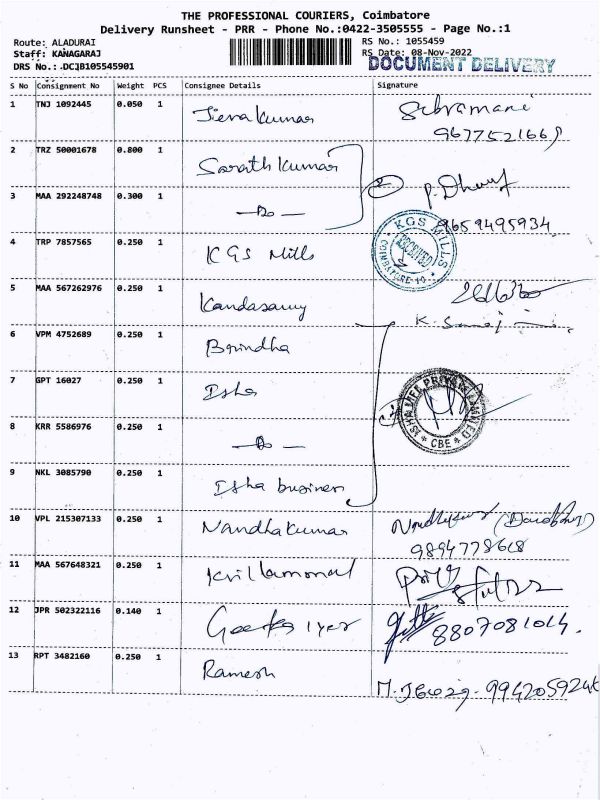 THE PROFESSIONAL COURIERS, Coimbatore
Delivery Runsheet - PRR - Phone No.:0422-3505555 - Page No.:1
Route: ALADURAI RS No.: 1055459
Staff: KANAGARAJ RS Date: 08-Nov-2022
DRS No.: DCJB105545901 DOCUMENT DELIVERY
S No Consignment No Weight PCS Consignee Details Signature
1 TNJ 1092445 0.050 1 Jeevakumar
2 TRZ 50001678 0.800 1 Sarath Kumar
3 MAA 292248748 0.300 1 — Do —
9659495934
4 TRP 7857565 0.250 1 KGS Mills KGS MILLS RECEIVED COIMBATORE
5 MAA 567262976 0.250 1 Kandasamy
6 VPM 4752689 0.250 1 Brindha
7 GPT 16027 0.250 1 Isha
8 KRR 5586976 0.250 1 — Do — CBE
9 NKL 3085790 0.250 1 Isha business
10 VPL 215307133 0.250 1 Nandhakumar
9894778668
11 MAA 567648321 0.250 1
12 JPR 502322116 0.140 1 Geetha iyer 8807081014.
13 RPT 3482160 0.250 1 Ramesh